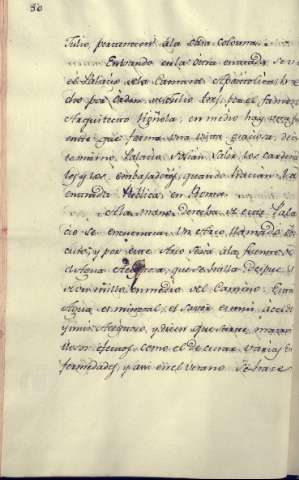 50
Julio pertenecen à la otra Colonna.
Entrando en la otra entrada, se ve
el Palacio de la Camara Apostolica, he
cho por orden de Julio ters. por el famoso
Arquitecto Viñola, en medio hay una fu
ente que forma una vista graciosa, de
este mismo Palacio salian los cardena
les y los embajadores, quando hacian la
entrada Publica en Roma.
A la mano derecha de este Pala
cio se encuentra un Arco llamado
y por este Arco se à la fuente
de Agua Acetosa, que se halla despues
de una milla en medio del Camino. Esta
Agua es mineral, el sabor es muy acido
y muy, y dicen que surte mara
villosos efectos, como el de curar varias En
fermedades, y asi en el verano se hace